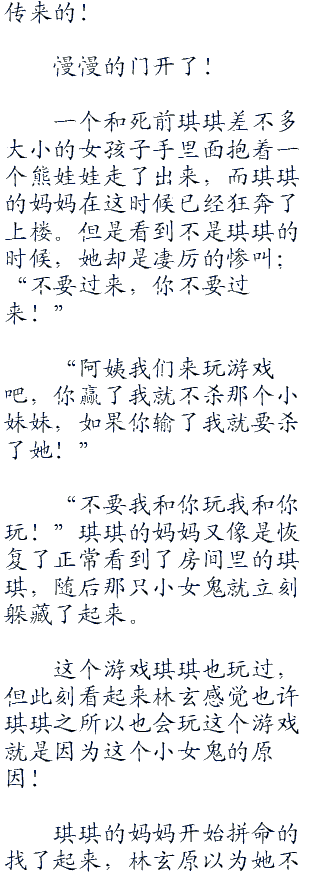 传来的！
慢慢的门开了！
一个和死前琪琪差不多
大小的女孩子手里面抱着一
个熊娃娃走了出来，而琪琪
的妈妈在这时候已经狂奔了
上楼。但是看到不是琪琪的
时候，她却是凄厉的惨叫：
“不要过来，你不要过
来！”
“阿姨我们来玩游戏
吧，你赢了我就不杀那个小
妹妹，如果你输了我就要杀
了她！”
“不要我和你玩我和你
玩！”琪琪的妈妈又像是恢
复了正常看到了房间里的琪
琪，随后那只小女鬼就立刻
躲藏了起来。
这个游戏琪琪也玩过，
但此刻看起来林玄感觉也许
琪琪之所以也会玩这个游戏
就是因为这个小女鬼的原
因！
琪琪的妈妈开始拼命的
找了起来，林玄原以为她不